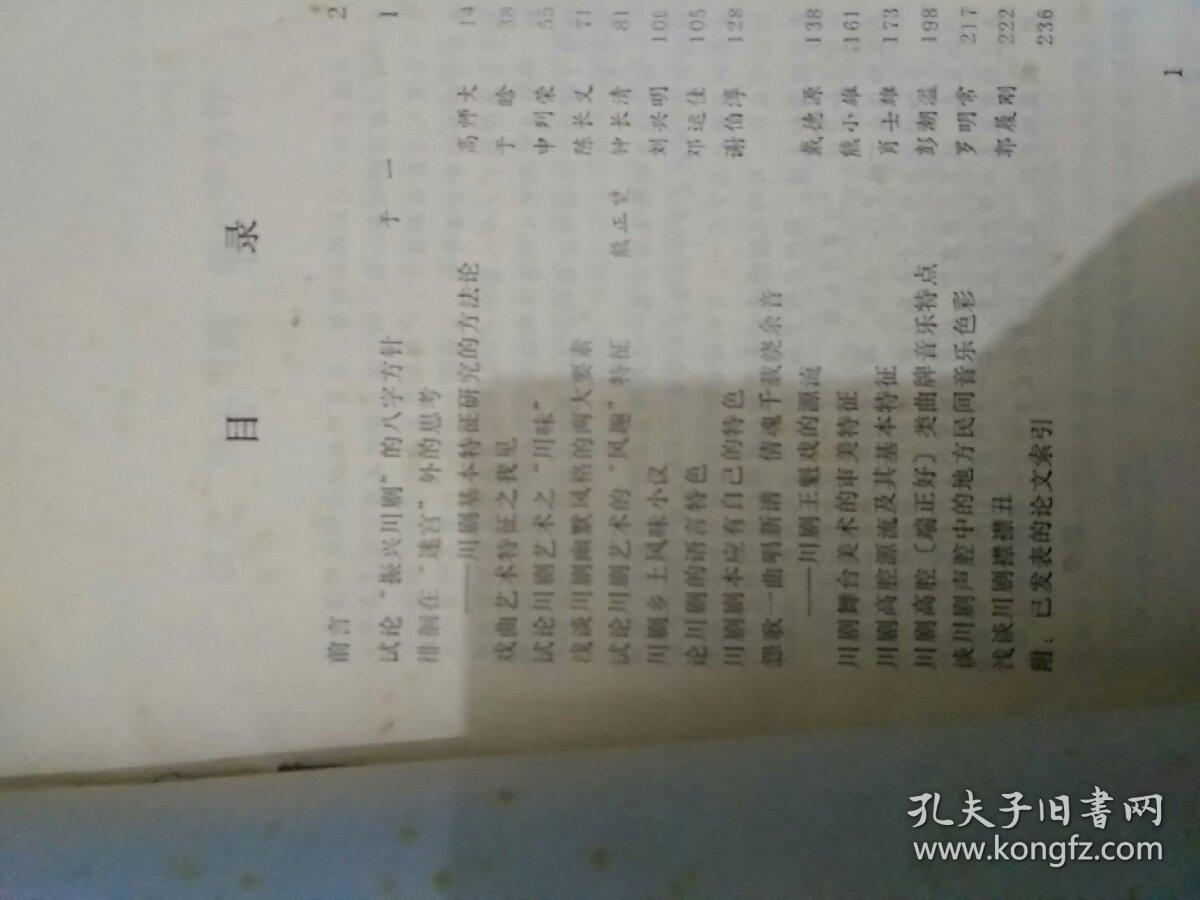 目 录
前言 2
试论“振兴川剧”的八字方针 于一 1
徘徊在“迷宫”外的思考
——川剧基本特征研究的方法论 高师大 14
戏曲艺术特征之我见 于 38
试论川剧艺术之“川味” 申列荣 55
浅谈川剧幽默风格的两大要素 陈长义 71
试论川剧艺术的“风趣”特征 熊正 钟长清 81
川剧乡土风味小议 刘兴明 100
论川剧的语言特色 邓运佳 105
川剧剧本应有自己的特色 谢伯淳 128
怨歌一曲唱新谱 倩魂千载绕余音
——川剧王魁戏的源流 戴德源 138
川剧舞台美术的审美特征 熊小雄 161
川剧高腔源流及其基本特征 肖士雄 173
川剧高腔〔端正好〕类曲牌音乐特点 彭潮溢 198
谈川剧声腔中的地方民间音乐色彩 罗明常 217
浅谈川剧襟襟丑 郭履刚 222
附：已发表的论文索引 236
1
孔夫子旧书网
www.kongfz.com